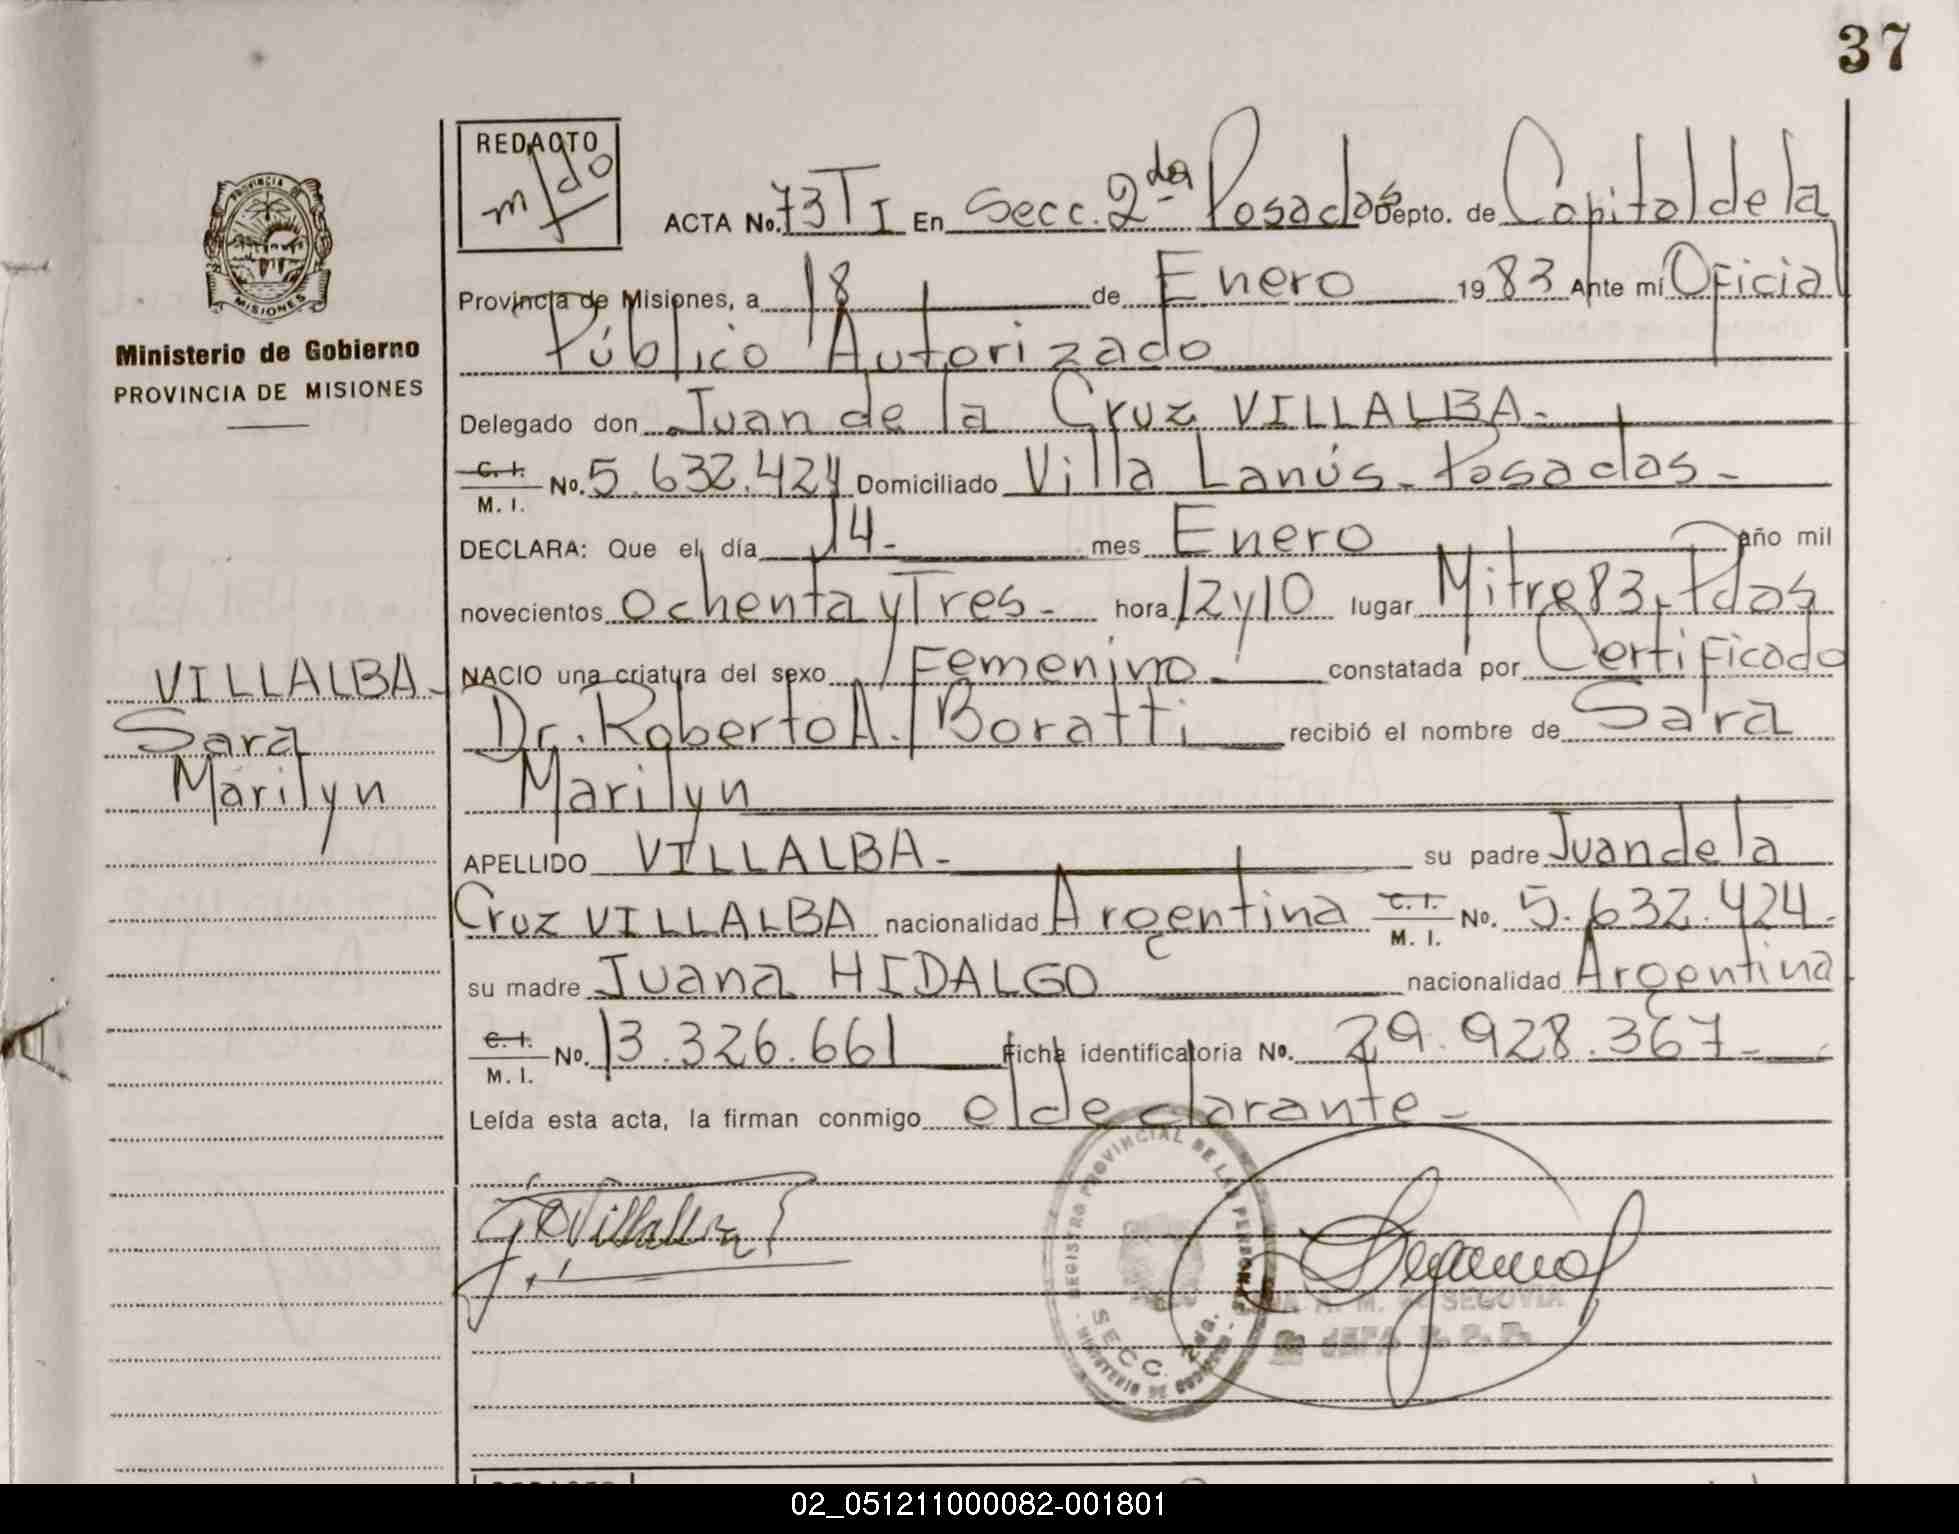 37
REDACTO
m/do
PROVINCIA DE
MISIONES
Ministerio de Gobierno
PROVINCIA DE MISIONES
VILLALBA-
Sara
Marilyn
ACTA No. 73 TI En Secc. 2da Posadas Depto. de Capital de la
Provincia de Misiones, a 18 de Enero 1983 Ante mí Oficial
Público Autorizado
Delegado don Juan de la Cruz VILLALBA-
C. I.
M. I. No. 5.632.424 Domiciliado Villa Lanús - Posadas -
DECLARA: Que el día 14- mes Enero año mil
novecientos ochenta y Tres- hora 12 y 10 lugar Mitre 83, Pdas
NACIO una criatura del sexo Femenino constatada por Certificado
Dr. Roberto A. Boratti recibió el nombre de Sara
Marilyn
APELLIDO VILLALBA- su padre Juan de la
Cruz VILLALBA nacionalidad Argentina C. I.
M. I. No. 5.632.424-
su madre Juana HIDALGO nacionalidad Argentina
C. I.
M. I. No. 13.326.661 Ficha identificatoria No. 29.928.367-
Leída esta acta, la firman conmigo el declarante-
REGISTRO PROVINCIAL DE LAS PERSONAS
SECC. 2da.
MINISTERIO DE GOBIERNO
SEGOVIA
JEFA
02_051211000082-001801